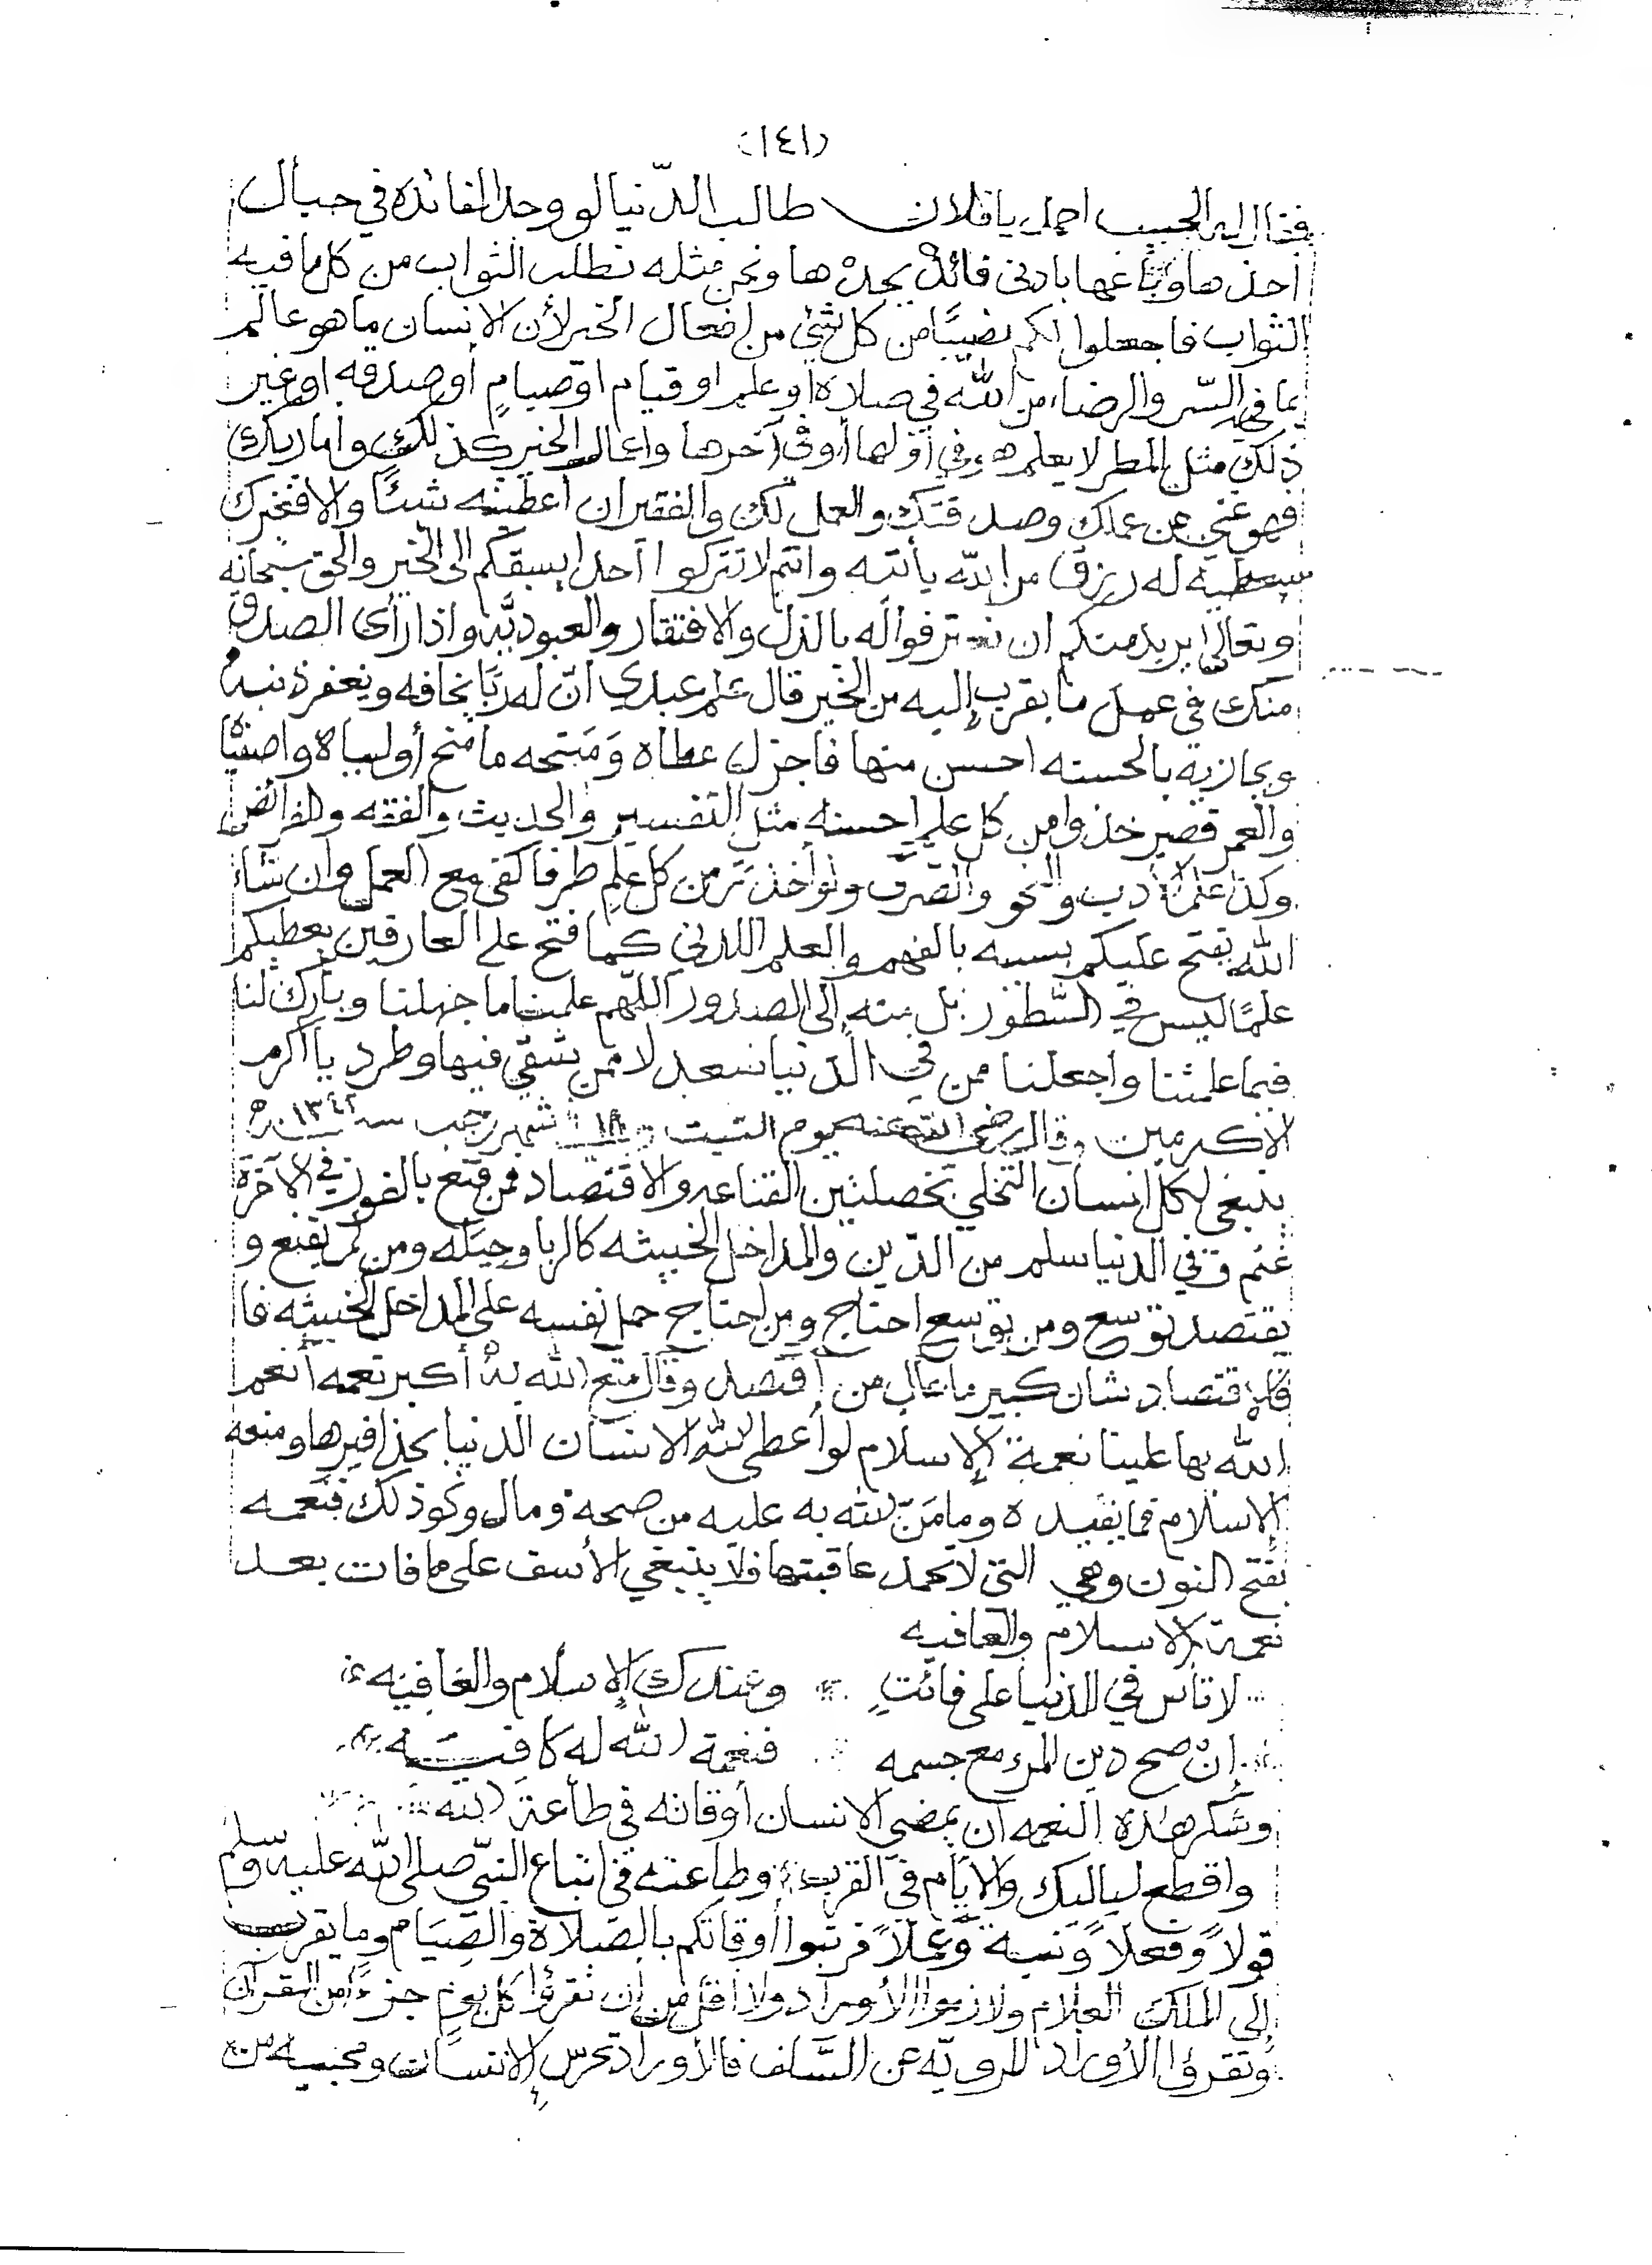 (١٤١)
فقال له الحبيب احمد يا فلان طالب الدّنيا لو وجد الفائدة في حبال
اخذها وباعها بادنى فائدة يجدها ونحن مثله نطلب الثواب من كل ما فيه
الثواب فاجعلوا لكم نصيبًا من كل شيْ من افعال الخير لأن الانسان ما هو عالم
بما فيه السّر والرضاء من الله في صلاة أو علم او قيام او صيامٍ أو صدقه او غير
ذلك مثل المطر لا يعلم هو في أولها أو في آخرها واعمال الخير كذلك واما ربك
فهو غني عن عملك وصدقتك والعمل لك والفقير ان أعطيته شيئًا والا فغيرك
سيعطيه له رزق من الله يأتيه وانتم لا تتركوا أحدا يسبقكم الى الخير والحق سبحانه
وتعالى يريد منكم ان تعترفوا له بالذل والافتقار والعبوديّه واذا رأى الصدق
منك في عمل ما يقرب إليه من الخير قال علم عبدي انّ له ربًّا يخافه ويغفر ذنبه
ويجازيه بالحسنه احسن منها فاجزل عطاه وَمَنحه ما منح أولياه واصفياه
والعمر قصير خذوا من كل علمٍ احسنه مثل التفسير والحديث والفقه والفرائض
وكذا علم الأدب والنحو والصّرف ولو أخذتم من كل علم طرفا كفى مع العمل وان شاء
الله يفتح عليكم بسببه بالفهم والعلم اللدني كما فتح على العارفين يعطيكم
علمًا ليس في السُّطور بل منه إلى الصدور اللّهم علمنا ما جهلنا وبارك لنا
فيما علمتنا واجعلنا ممن في الدنيا سعد لا ممن شقي فيها وطرد يا أكرم
الاكرمين وقال رضي الله عنه يوم السبت ١٨ شهر رجب سنة ١٣٤٢ هـ
ينبغي لكل انسان التخلي بخصلتين القناعه والاقتصاد فمن قنع بالفوز في الآخرة
غنم وفي الدنيا سلم من الدّين والمداخل الخبيثه كالربا وحِيَله ومن لم يقنع و
يقتصد توسع ومن توسع احتاج ومن احتاج حمل نفسه على المداخل الخبيثه فا
فللاقتصاد شان كبير ما عال من أقتصد وقال متع الله به أكبر نعمه أنعم
الله بها علينا نعمة الإسلام لو أعطى الله الانسان الدنيا بحذافيرها ومنعه
الإسلام فما يفيده وما مَنّ الله به عليه من صحه ومال ونحو ذلك فنَعمه
بفتح النون وهي التي لا تحمد عاقبتها فلا ينبغي الأسف على ما فات بعد
نعمة الاسلام والعافيه
لا تأس في الدنيا على فائتٍ وعندك الإسلام والعافيه
إنْ صح دين المرء مع جسمه فنعمة الله له كافيَه
وشكر هذه النعمه أن يمضي الانسان أوقاته في طاعة الله
واقطع لياليك والأيّام في القرب وطاعته في اتباع النبيّ صلى الله عليه وسلم
قولاً وفعلاً ونية وعملاً فرتبوا أوقاتكم بالصّلاة والصّيَام وما يقرب
إلى الملك العلام ولازموا الأوراد ولا اقل من ان تقرؤا كل يوم جزءًا من القرآن
وتقرؤا الأوراد المرويّه عن السَّلف فالأوراد تحرس الإنسان ومحبيه من